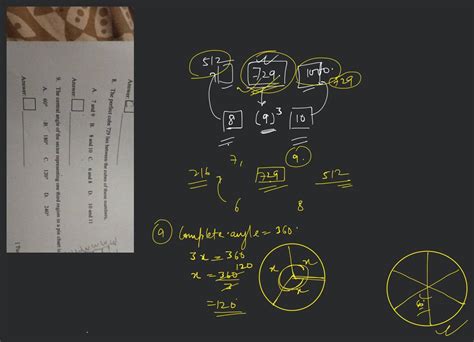 Answer:
8. The perfect cube 729 lies between the cubes of these numbers.
A. 7 and 9 B. 8 and 10 C. 6 and 8 D. 10 and 11
Answer:
9. The central angle of the sector representing one third region in a pie chart is
A. 60° B. 180° C. 120° D. 240°
Answer:
512 729 1000.
729
8 (9)³ 10
7, 9.
216 729 512
6 8
9 Complete angle = 360°
3x = 360
x = 360 120
3
= 120°
x x
x
60°